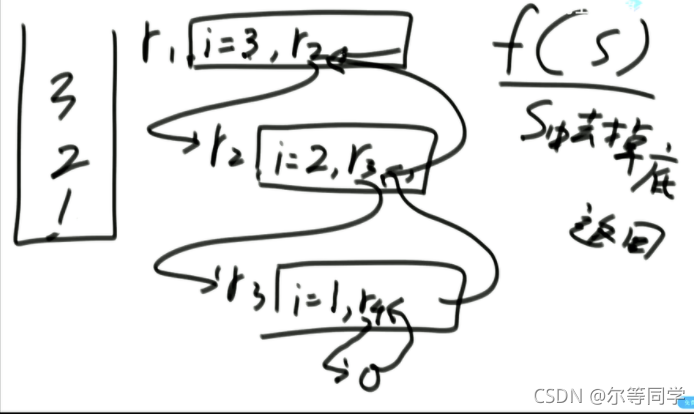 3
2
1
r1 i=3, r2
r2 i=2, r3
r3 i=1, r4
0
f(s)
S中去掉底
返回
CSDN @尔等同学